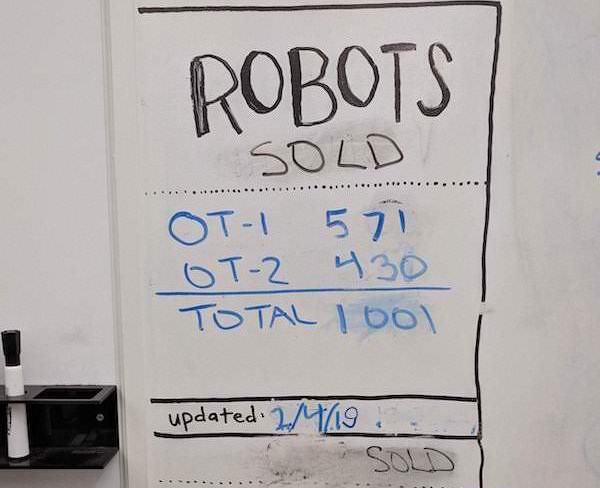 ROBOTS
SOLD
OT-1 571
OT-2 430
TOTAL 1001
updated: 2/4/19
SOLD